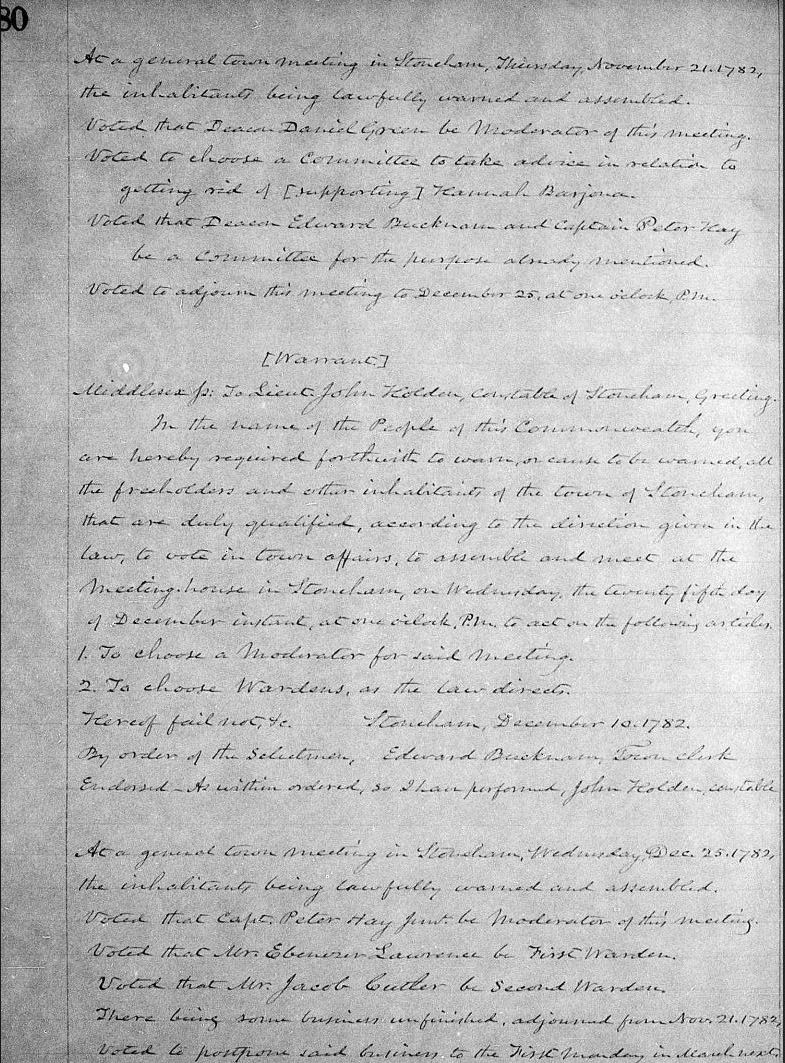 80
At a general town meeting in Stoneham, Thursday, November 21. 1782,
the inhabitants being lawfully warned and assembled.
Voted that Deacon Daniel Green be Moderator of this meeting.
Voted to choose a Committee to take advice in relation to
getting rid of [supporting] Hannah Barjona.
Voted that Deacon Edward Bucknam and Captain Peter Hay
be a Committee for the purpose already mentioned.
Voted to adjourn this meeting to December 25, at one o'clock, P.M.
[Warrant.]
Middlesex ss: To Lieut. John Holden, constable of Stoneham, Greeting.
In the name of the People of this Commonwealth, you
are hereby required forthwith to warn, or cause to be warned, all
the freeholders and other inhabitants of the town of Stoneham,
that are duly qualified, according to the direction given in the
law, to vote in town affairs, to assemble and meet at the
Meeting-house in Stoneham, on Wednesday, the twenty fifth day
of December instant, at one o'clock, P.M. to act on the following articles.
1. To choose a Moderator for said Meeting.
2. To choose Wardens, as the law directs.
Hereof fail not, &c. Stoneham, December 10. 1782.
By order of the Selectmen, Edward Bucknam, Town Clerk
Endorsed - As within ordered, so I have performed, John Holden, constable
At a general town meeting in Stoneham, Wednesday, Dec. 25. 1782,
the inhabitants being lawfully warned and assembled.
Voted that Capt. Peter Hay Junr. be Moderator of this meeting.
Voted that Mr. Ebenezer Lawrence be First Warden.
Voted that Mr. Jacob Cutler be Second Warden.
There being some business unfinished, adjourned from Nov. 21. 1782,
Voted to postpone said business to the First Monday in March next.